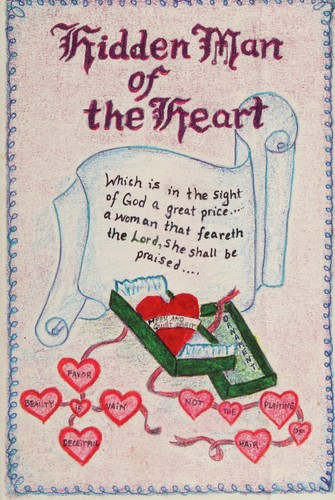 Hidden Man
of
the Heart
Which is in the sight
of God a great price....
a woman that feareth
the Lord, she shall be
praised....
MEEK AND
QUIET SPIRIT
FAVOR
BEAUTY IS VAIN
DECEITFUL
NOT THE PLAITING
OF
HAIR